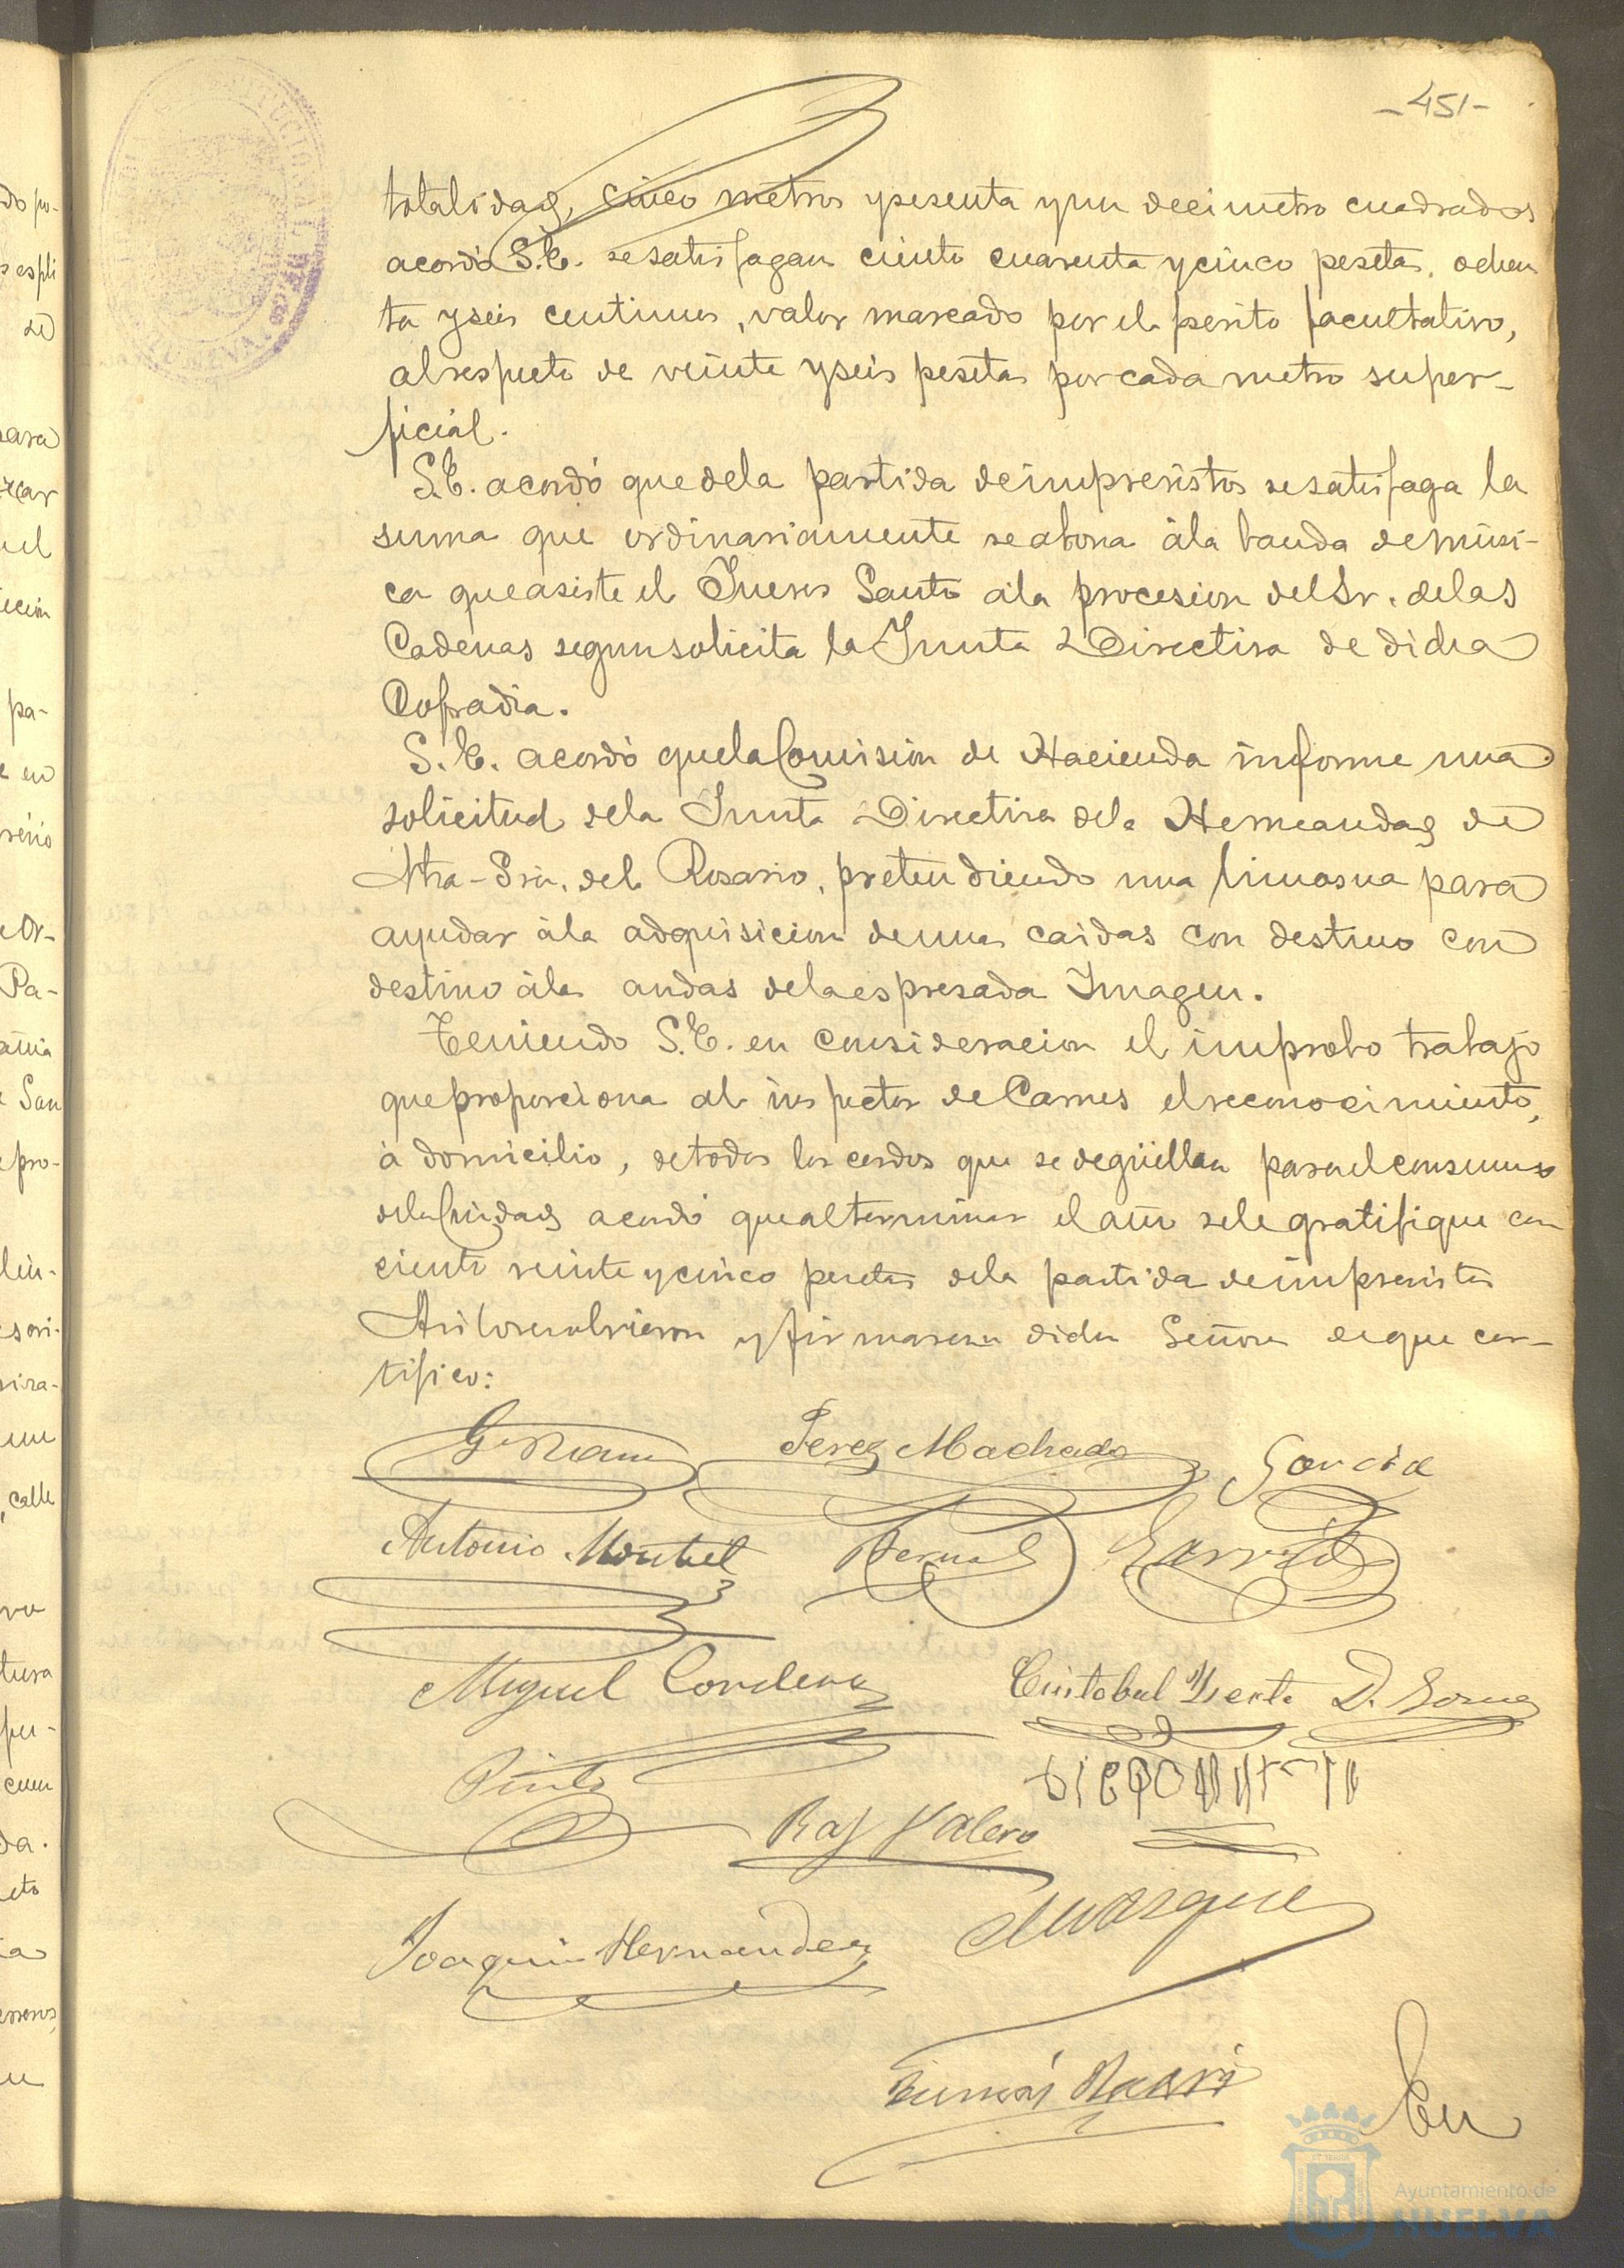 -451-
totalidad, cinco metros y sesenta y un decimetro cuadrados
acordó S.E. se satisfagan ciento cuarenta y cinco pesetas, ochen
ta y seis centimos, valor marcado por el perito facultativo,
al respecto de veinte y seis pesetas por cada metro super-
ficial.
S.E. acordó que de la partida de imprevistos se satisfaga la
suma que ordinariamente se abona á la banda de músi-
ca que asiste el Jueves Santo á la procesion del Sr. de las
Cadenas segun solicita la Junta Directiva de dicha
Cofradia.
S.E. acordó que la Comisión de Hacienda informe una
solicitud de la Junta Directiva de la Hermandad de
Ntra. Sra. del Rosario, pretendiendo una limosna para
ayudar á la adquisicion de unas caidas con destino con
destino á las andas de la espresada Imagen.
Teniendo S.E. en consideracion el improbo trabajo
que proporciona al inspector de Carnes el reconocimiento,
á domicilio, de todos los cerdos que se degüellan para el consumo
de la Ciudad acordó que al terminar el año se le gratifique con
ciento veinte y cinco pesetas de la partida de imprevistos
Asi lo resolvieron y firmaron dichos Señores de que cer-
tifico:
Perez Machado Garcia
Antonio Montiel Bernal Garrido
Miguel Cordero Cristobal D. Gomez
Pinto
Raf Valero
Joaquin Hernandez Marquez
En
Ayuntamiento de
HUELVA